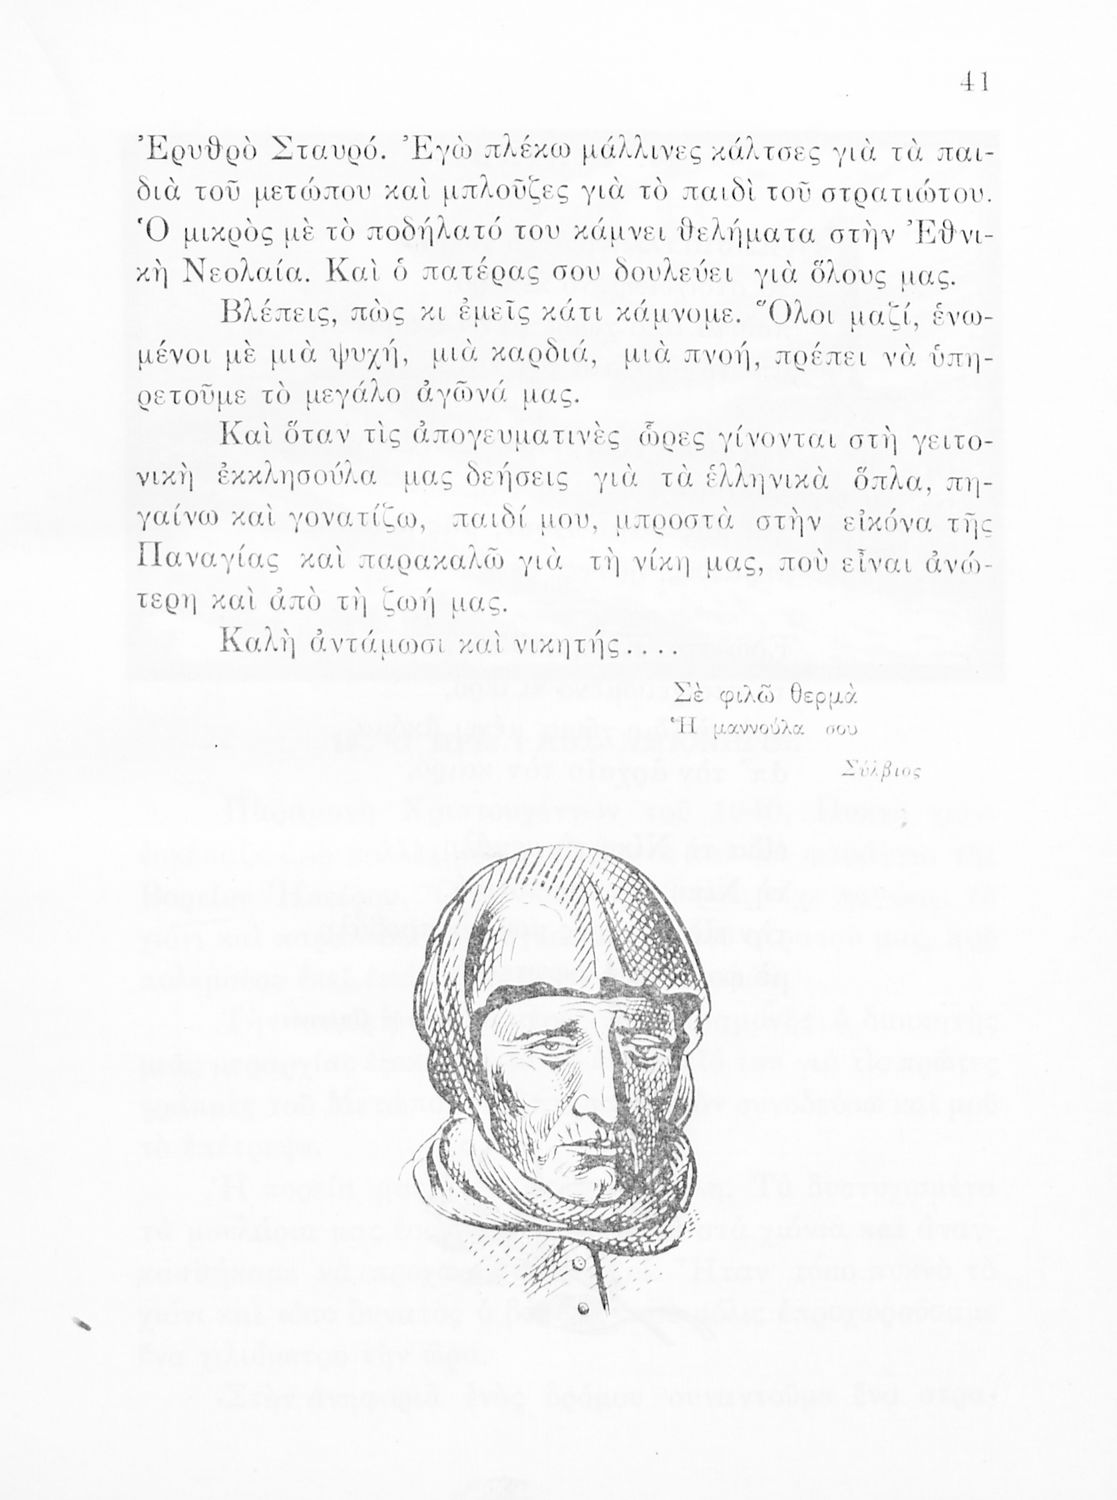 41
Ἐρυθρὸ Σταυρό. Ἐγὼ πλέκω μάλλινες κάλτσες γιὰ τὰ παι-
διὰ τοῦ μετώπου καὶ μπλοῦζες γιὰ τὸ παιδὶ τοῦ στρατιώτου.
Ὁ μικρὸς μὲ τὸ ποδήλατό του κάμνει θελήματα στὴν Ἐθνι-
κὴ Νεολαία. Καὶ ὁ πατέρας σου δουλεύει γιὰ ὅλους μας.
Βλέπεις, πὼς κι ἐμεῖς κάτι κάμνομε. Ὅλοι μαζί, ἑνω-
μένοι μὲ μιὰ ψυχή, μιὰ καρδιά, μιὰ πνοή, πρέπει νὰ ὑπη-
ρετοῦμε τὸ μεγάλο ἀγῶνά μας.
Καὶ ὅταν τὶς ἀπογευματινὲς ὧρες γίνονται στὴ γειτο-
νικὴ ἐκκλησούλα μας δεήσεις γιὰ τὰ ἑλληνικὰ ὅπλα, πη-
γαίνω καὶ γονατίζω, παιδί μου, μπροστὰ στὴν εἰκόνα τῆς
Παναγίας καὶ παρακαλῶ γιὰ τὴ νίκη μας, ποὺ εἶναι ἀνώ-
τερη καὶ ἀπὸ τὴ ζωή μας.
Καλὴ ἀντάμωσι καὶ νικητής....
Σὲ φιλῶ θερμὰ
Ἡ μαννούλα σου
Σύλβιος